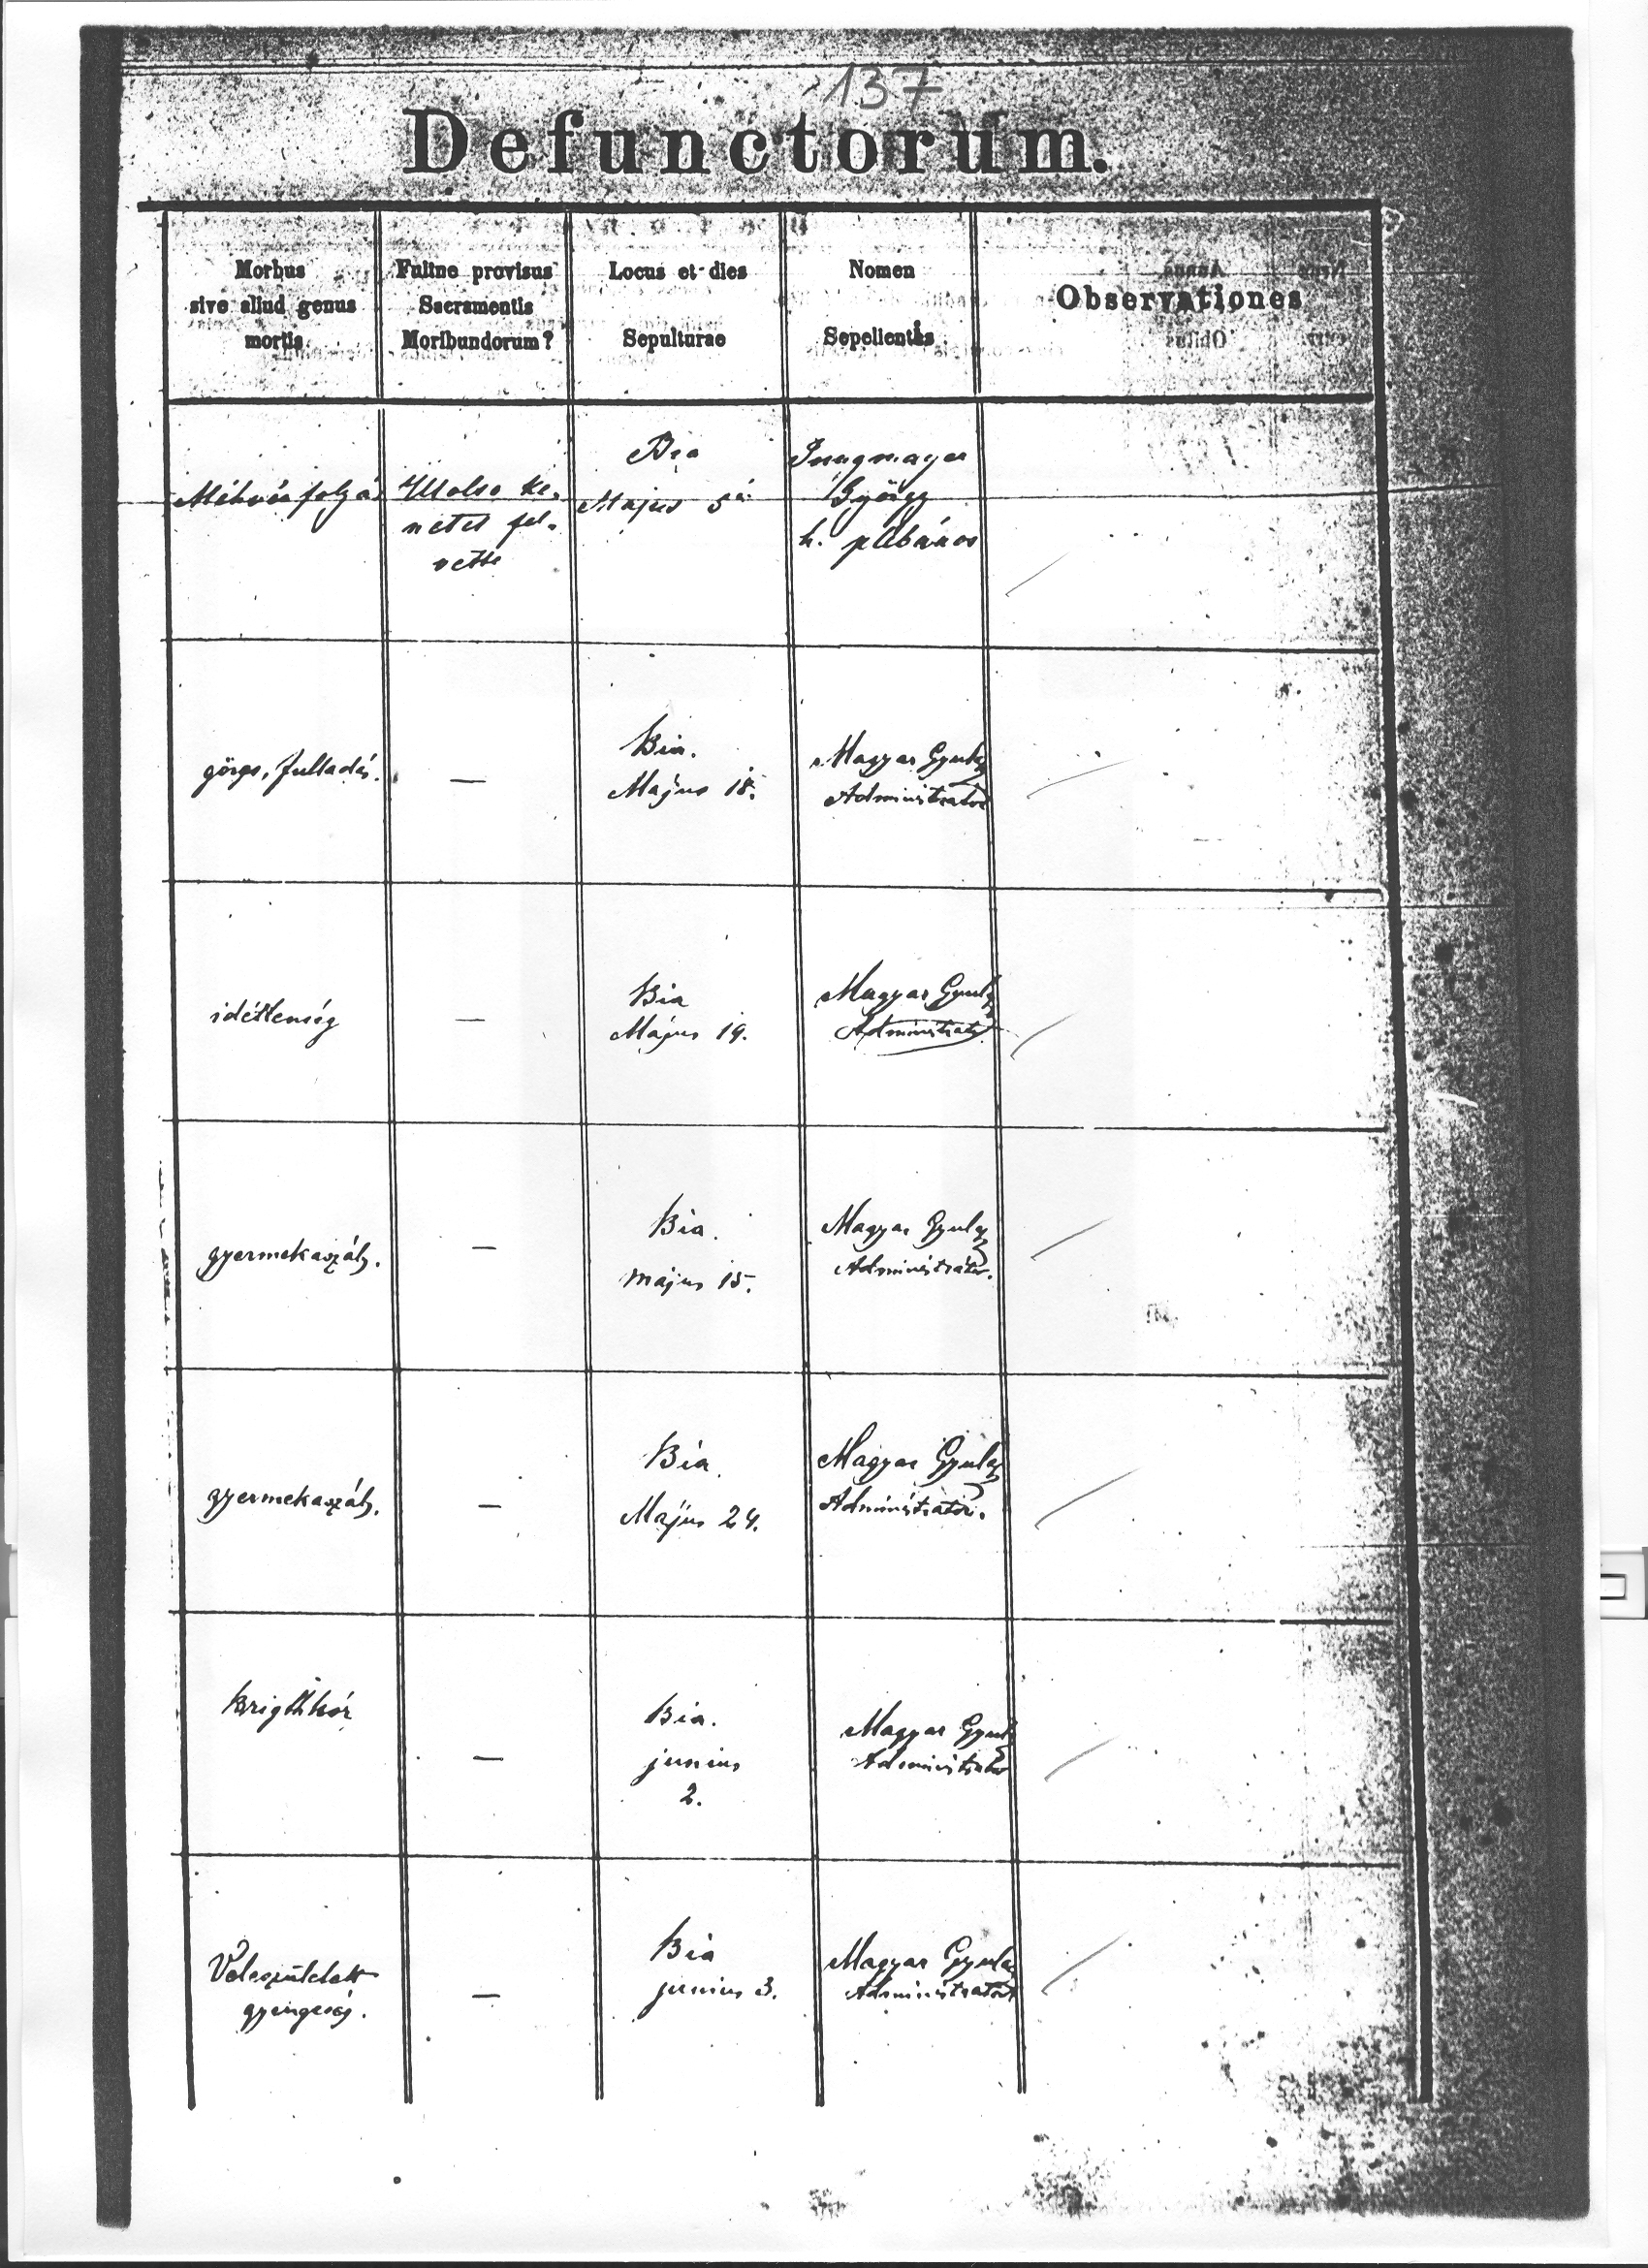 137
Defunctorum.
Morbus
sive aliud genus
mortis
Fuitne provisus
Sacramentis
Moribundorum?
Locus et dies
Sepulturae
Nomen
Sepelientis
Observationes
Méhvérfolyás
Utolso ke-
netet fel-
vette
Bia
Majus 5én
György
h. plébános
görcs, fulladás.
—
Bia.
Május 18.
Magyar Gyula
Administrator
idétlenség
—
Bia
Május 19.
Magyar Gyula
Administrator
gyermekaszály.
—
Bia.
május 15.
Magyar Gyula
Administrátor.
gyermekaszály.
—
Bia.
Május 24.
Magyar Gyula
Administrator.
Brigthkór
—
Bia.
junius
2.
Magyar Gyula
Administrator
Veleszületett
gyengeség.
—
Bia
junius 3.
Magyar Gyula
Administrator